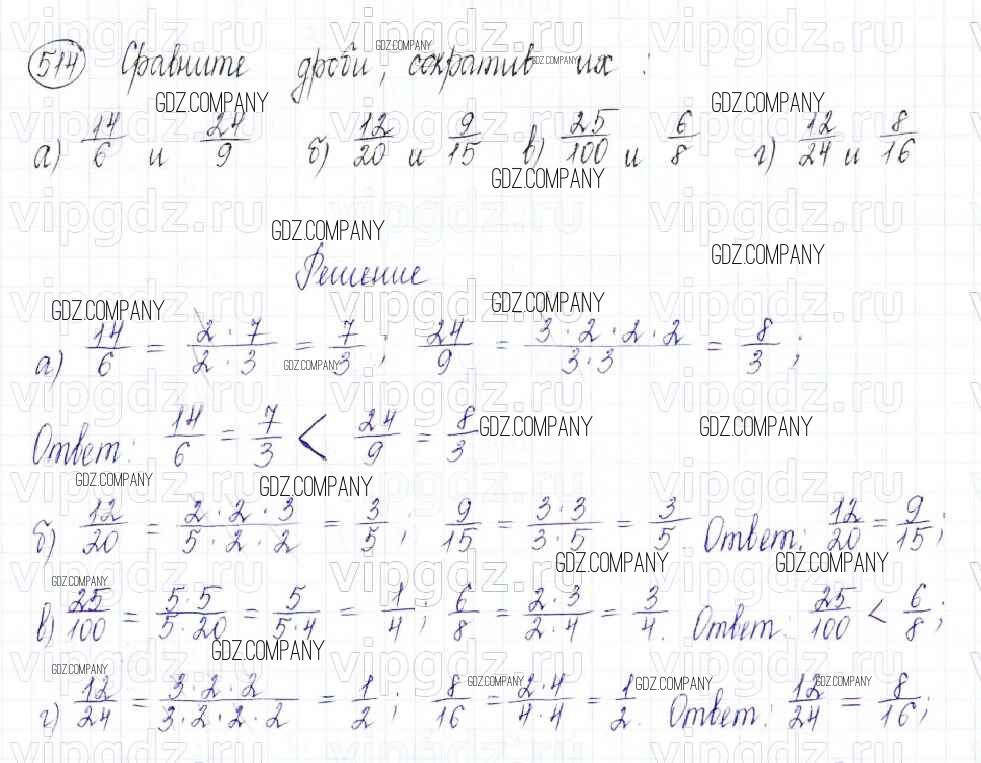 514 Сравните дроби, сократив их:
а) 14/6 и 24/9 б) 12/20 и 9/15 в) 25/100 и 6/8 г) 12/24 и 8/16
Решение
а) 14/6 = 2·7/2·3 = 7/3; 24/9 = 3·2·2·2/3·3 = 8/3;
Ответ: 14/6 = 7/3 < 24/9 = 8/3
б) 12/20 = 2·2·3/5·2·2 = 3/5; 9/15 = 3·3/3·5 = 3/5. Ответ: 12/20 = 9/15;
в) 25/100 = 5·5/5·20 = 5/5·4 = 1/4; 6/8 = 2·3/2·4 = 3/4. Ответ: 25/100 < 6/8;
г) 12/24 = 3·2·2/3·2·2·2 = 1/2; 8/16 = 2·4/4·4 = 1/2. Ответ: 12/24 = 8/16;
GDZ.COMPANY
vipgdz.ru